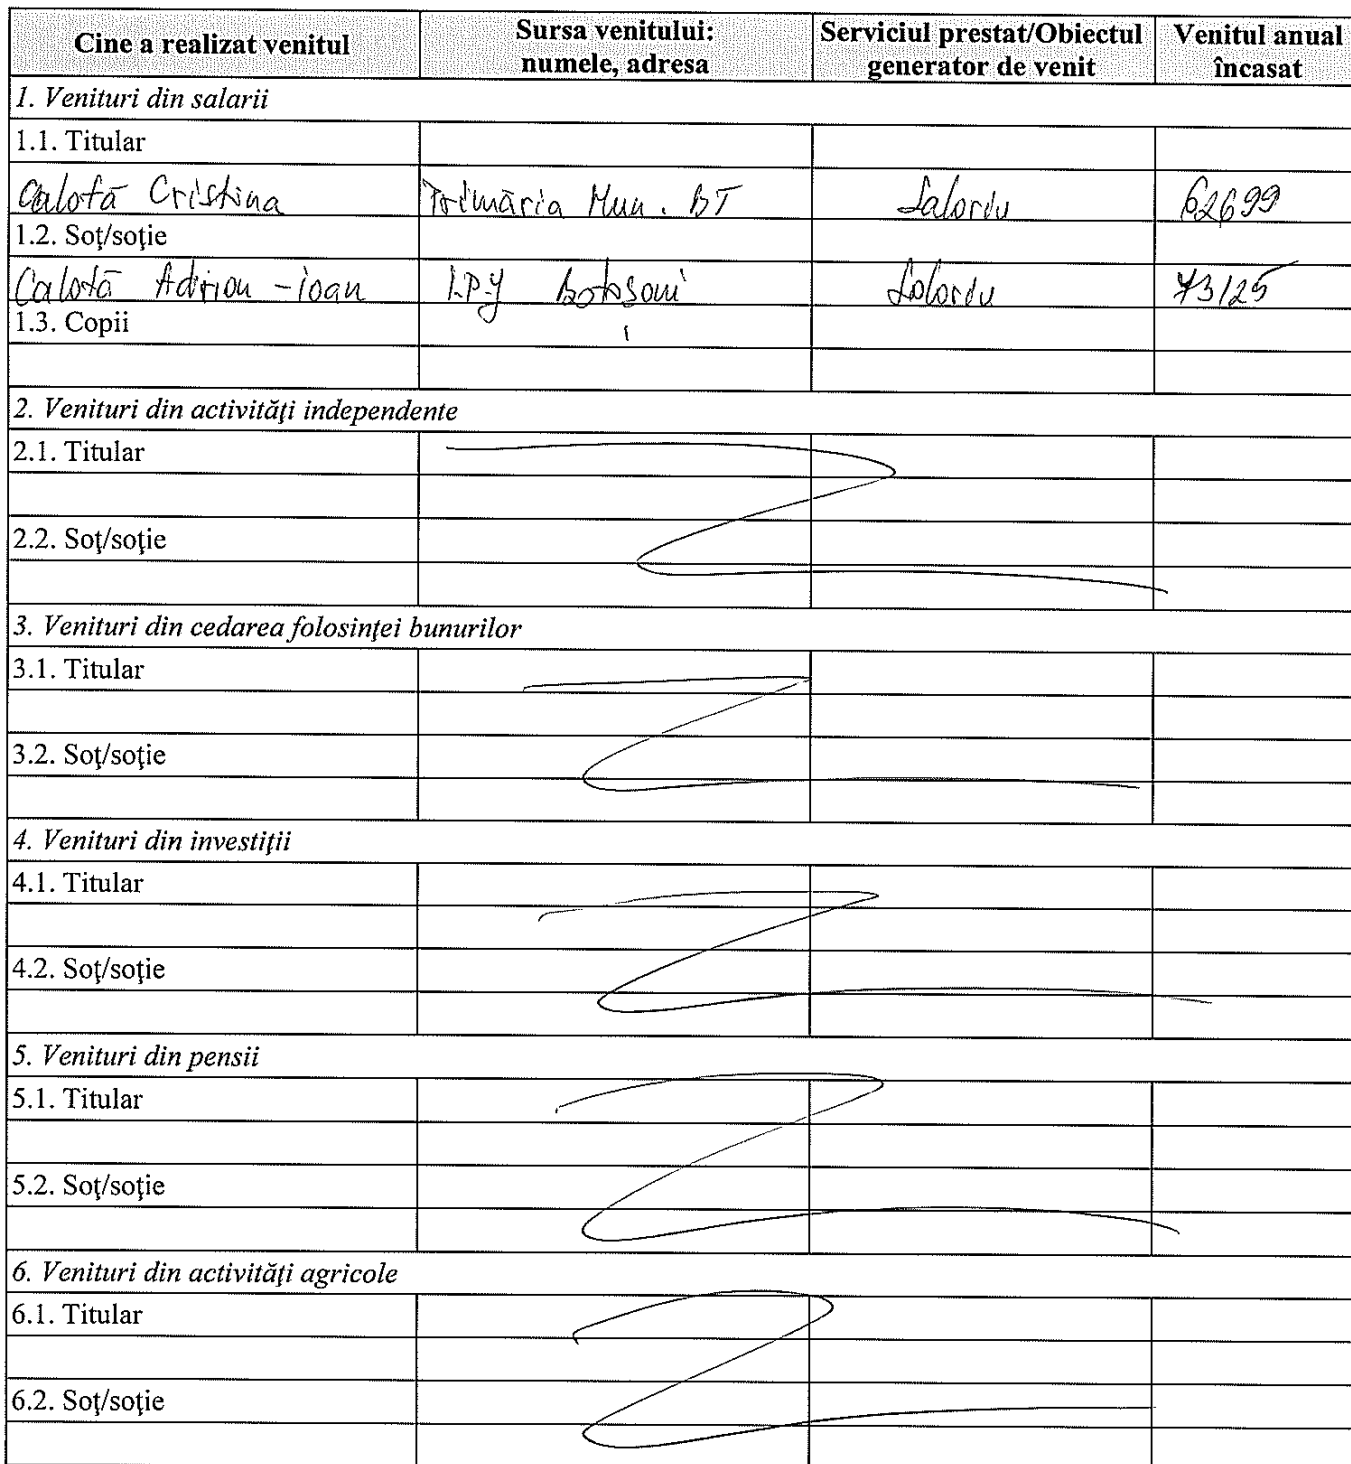 Cine a realizat venitul | Sursa venitului: numele, adresa | Serviciul prestat/Obiectul generator de venit | Venitul anual încasat
1. Venituri din salarii
1.1. Titular
Calotă Cristina | Primăria Mun. BT | Salariu | 62699
1.2. Soţ/soţie
Calotă Adrian-ioan | I.P.J Botoşani | Salariu | 73125
1.3. Copii
2. Venituri din activităţi independente
2.1. Titular
2.2. Soţ/soţie
3. Venituri din cedarea folosinţei bunurilor
3.1. Titular
3.2. Soţ/soţie
4. Venituri din investiţii
4.1. Titular
4.2. Soţ/soţie
5. Venituri din pensii
5.1. Titular
5.2. Soţ/soţie
6. Venituri din activităţi agricole
6.1. Titular
6.2. Soţ/soţie